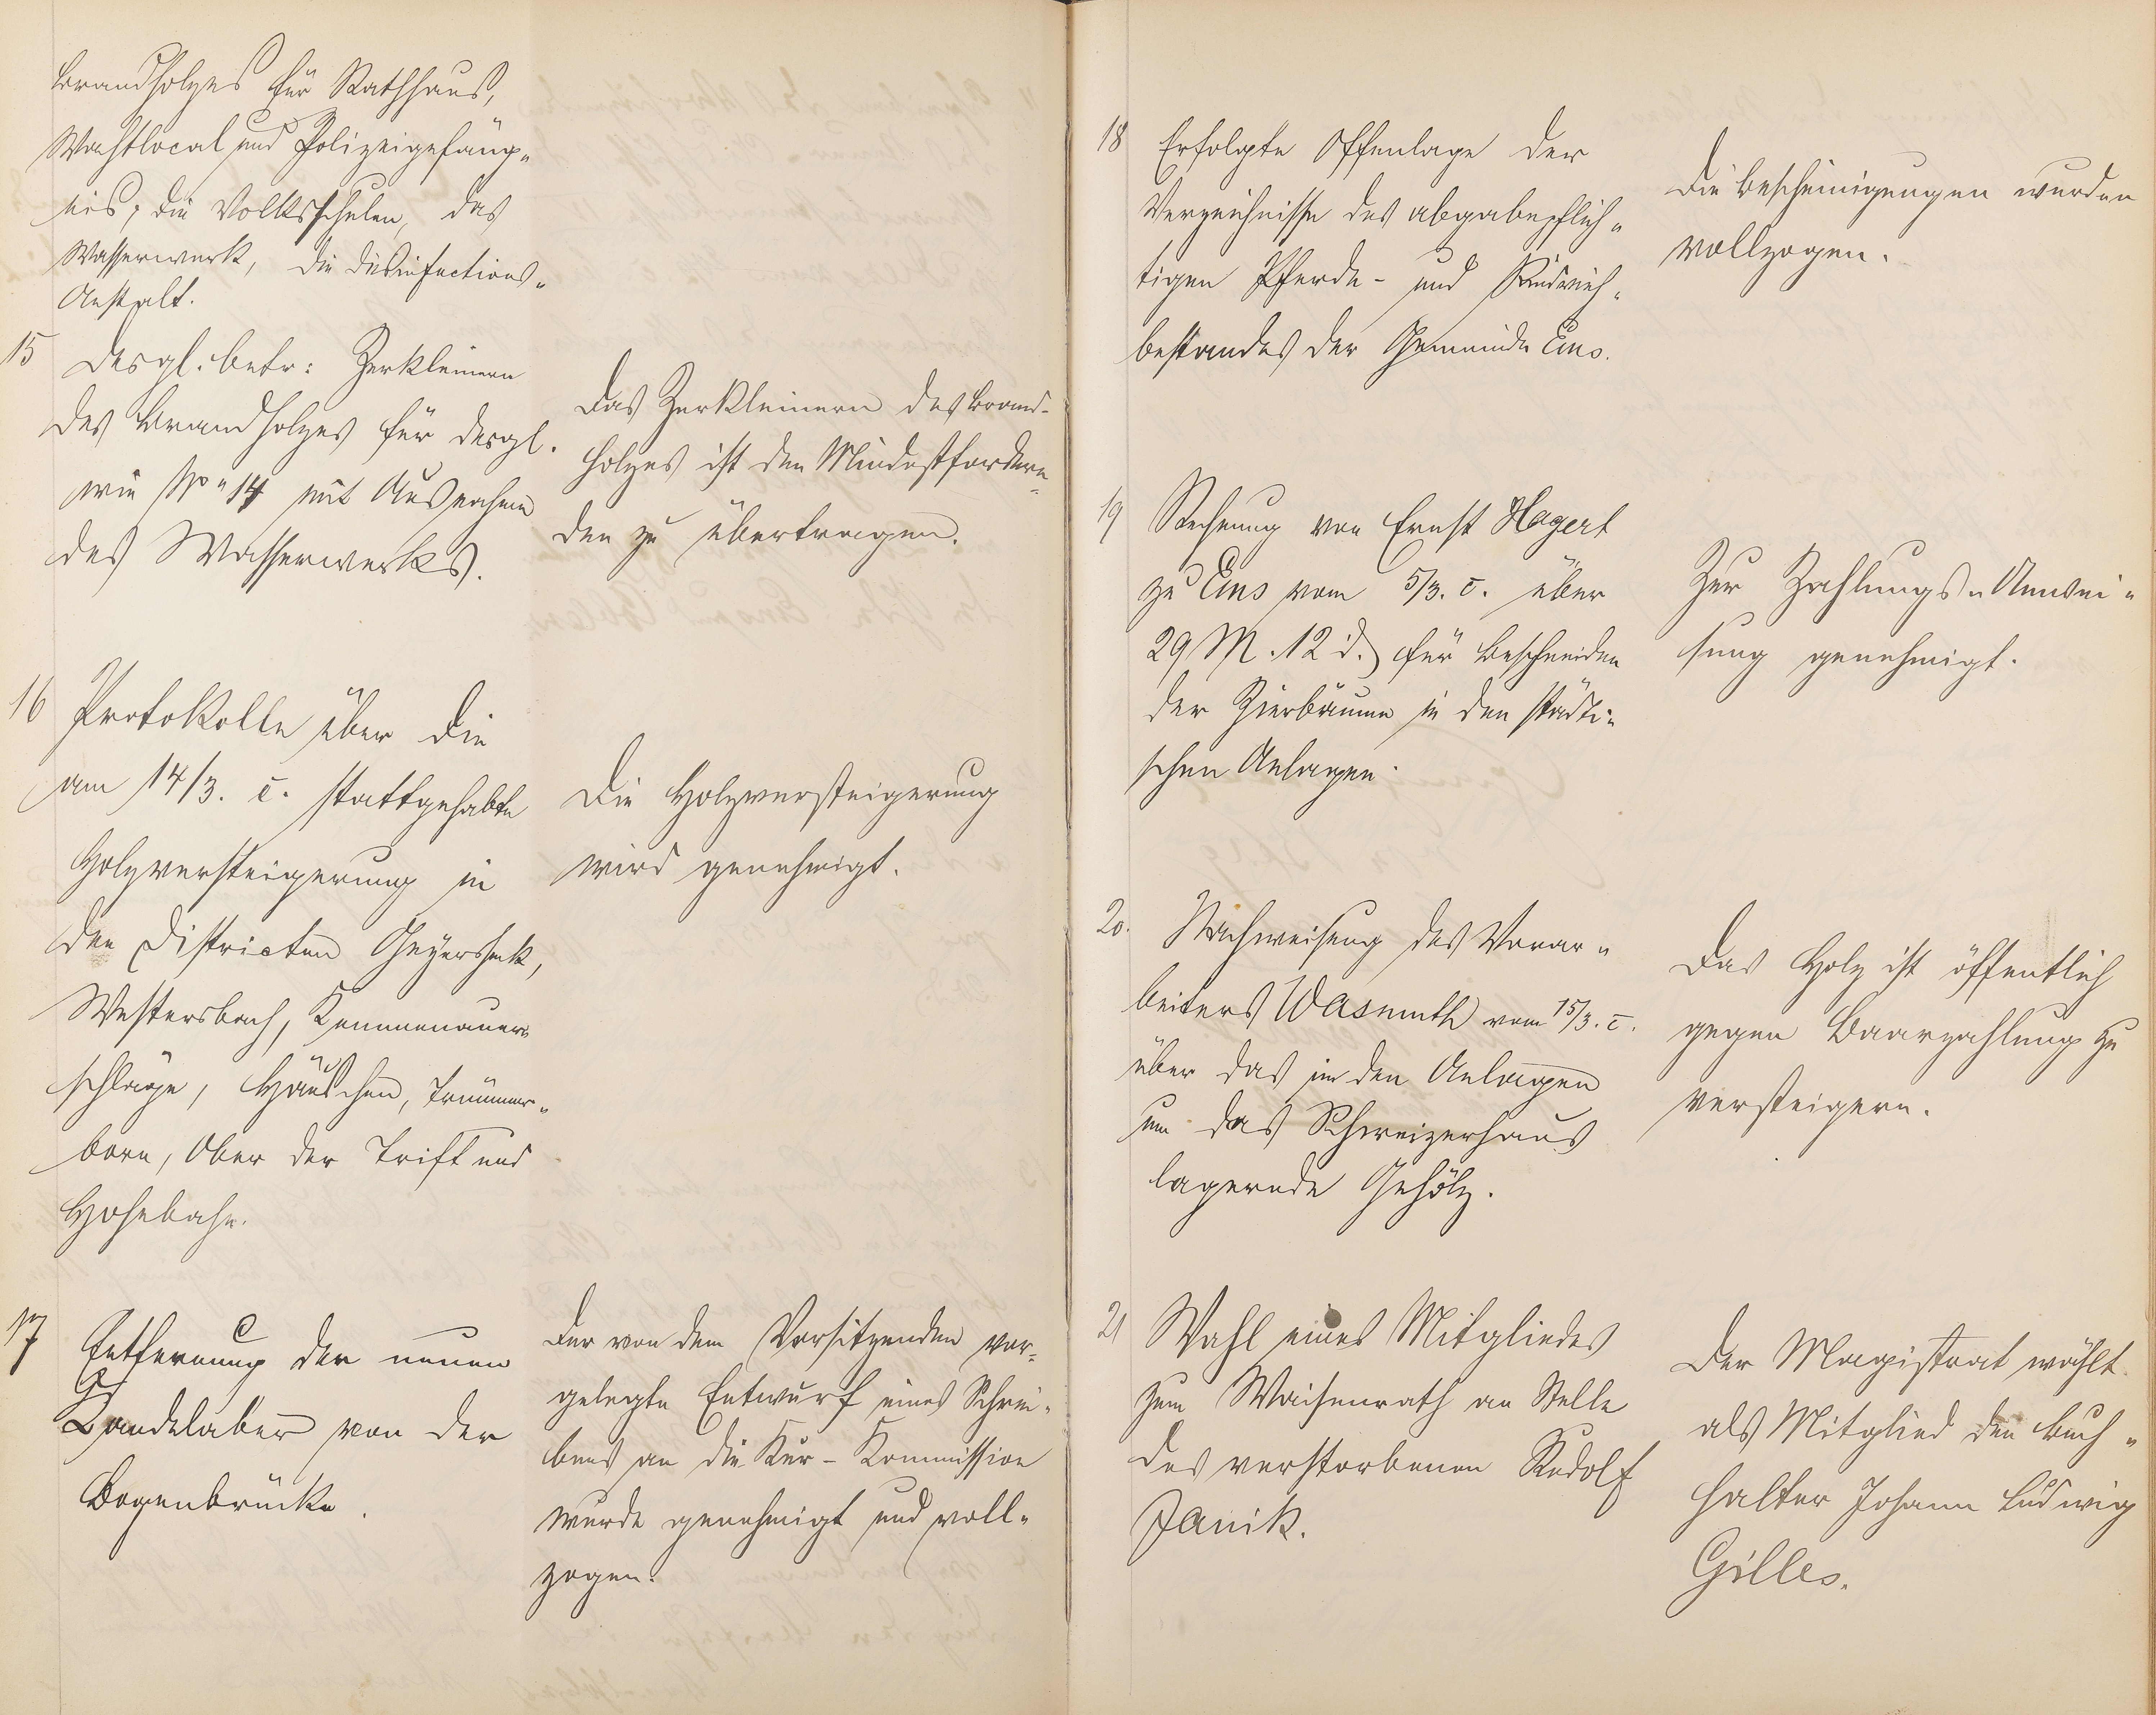 Brandholzes für Rathhaus,
Wachtlocal und Polizeigefäng-
nis; die Volksschulen, das
Wasserwerk, die Disinfections-
Anstalt.
15 Desgl. betr: Zerkleinern
des Brandholzes für desgl.
wie No 14 mit Ausnahme
des Wasserwerks.
Das Zerkleinern des Brand-
holzes ist den Mindestfordern-
den zu übertragen.
16 Protokolle über die
am 14/3. c. stattgehabte
Holzversteigerung in
den Districten Geyersheck,
Westersbach, Kemmenauer-
schläge, Häuschen, Trümmer-
born, Ober der Trift und
Hohebahn.
Die Holzversteigerung
wird genehmigt.
17 Entfernung der neuen
Candelaber von der
Bogenbrücke.
Der von dem Vorsitzenden vor-
gelegte Entwurf eines Schrei-
bens an die Kur-Kommission
wurde genehmigt und voll-
zogen.
18 Erfolgte Offenlage der
Verzeichnisse des abgabepflich-
tigen Pferde- und Rindvieh-
bestandes der Gemeinde Ems.
Die Bescheinigungen wurden
vollzogen.
19 Rechnung von Ernst Hagert
zu Ems vom 5/3. c. über
29 M. 12 d. für Beschneiden
der Zierbäume in den städti-
schen Anlagen.
Zur Zahlungs-Anwei-
sung genehmigt.
20. Nachweisung des Vorar-
beiters Wasmuth vom 15/3. c.
über das in den Anlagen
um das Schweizerhaus
lagernde Gehölz.
Das Holz ist öffentlich
gegen Baarzahlung zu
versteigern.
21 Wahl eines Mitgliedes
zum Waisenrath an Stelle
des verstorbenen Rudolf
Janik.
Der Magistrat wählt
als Mitglied den Buch-
halter Johann Ludwig
Gilles.